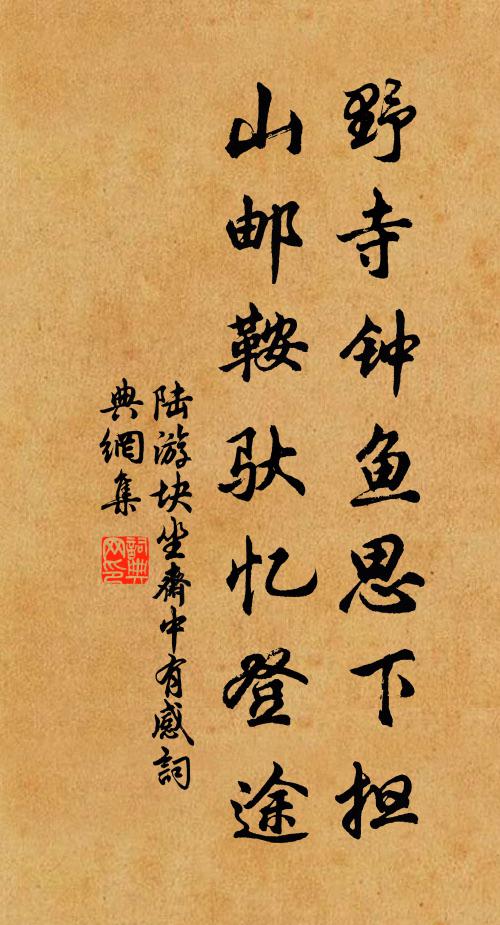 野寺钟鱼思下担
山邮鞍驮忆登途
陆游块坐斋中有感詞
典網集
詞典
网印